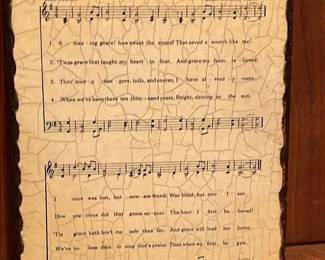 1. A - maz - ing grace! how sweet the sound! That saved a wretch like me!
2. 'Twas grace that taught my heart to fear, And grace my fears re - lieved.
3. Thro' man - y dan - gers, toils, and snares, I have al - read - y come.
4. When we've been there ten thou - sand years, Bright, shining as the sun,
I once was lost, but now am found; Was blind, but now I see.
How pre - cious did that grace ap - pear The hour I first be - lieved!
'Tis grace hath bro't me safe thus far, And grace will lead me home.
We've no less days to sing God's praise Than when we first be - gun.